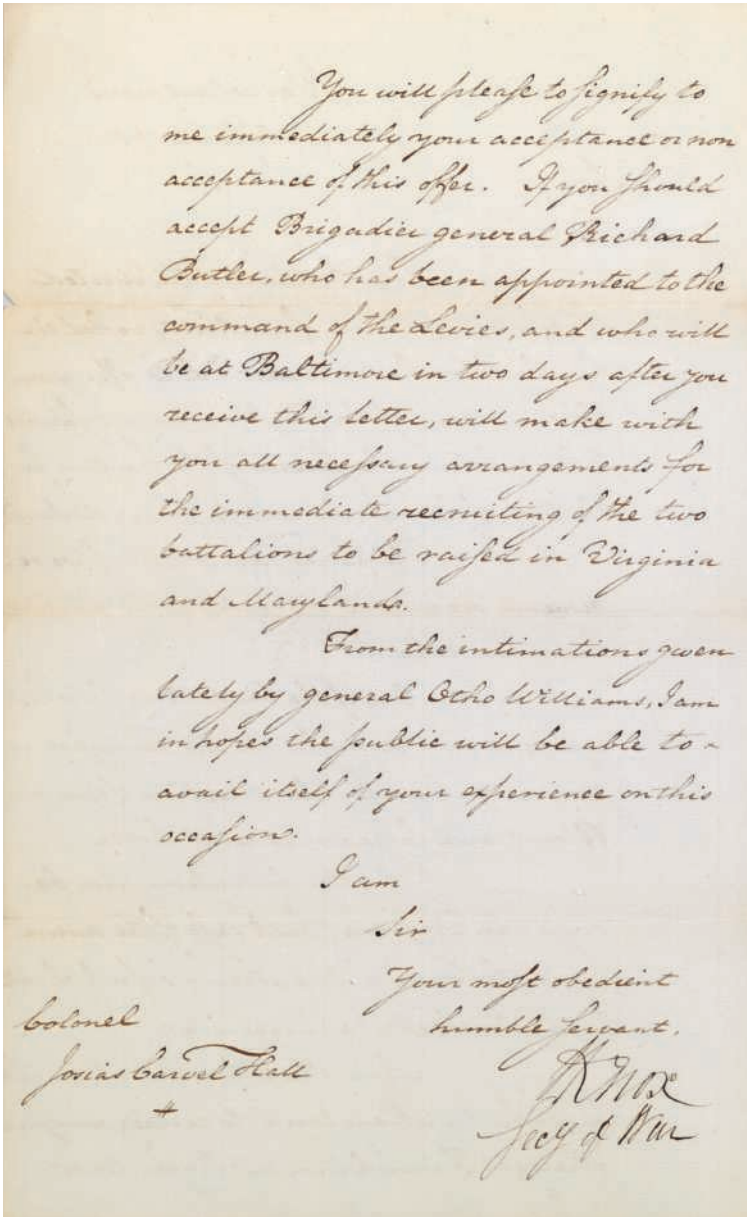 You will please to signify to
me immediately your acceptance or non
acceptance of this offer. If you should
accept Brigadier general Richard
Butler, who has been appointed to the
command of the Levies, and who will
be at Baltimore in two days after you
receive this letter, will make with
you all necessary arrangements for
the immediate recruiting of the two
battalions to be raised in Virginia
and Maryland.
From the intimations given
lately by general Otho Williams, I am
in hopes the public will be able to
avail itself of your experience on this
occasion.
I am
Sir
Your most obedient
humble servant.
HKnox
Secy of War
Colonel
Josias Carvel Hall